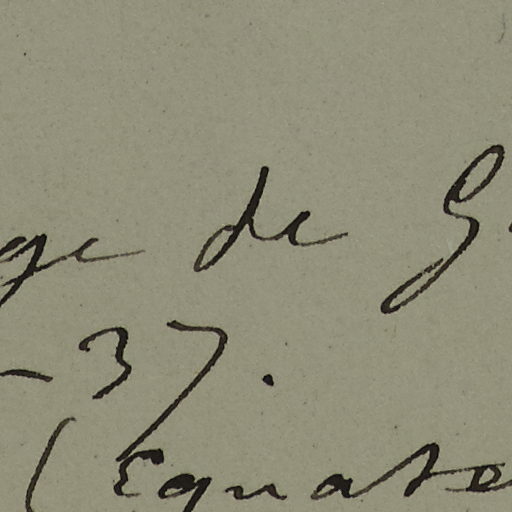 ge de G
- 37.
(Equate